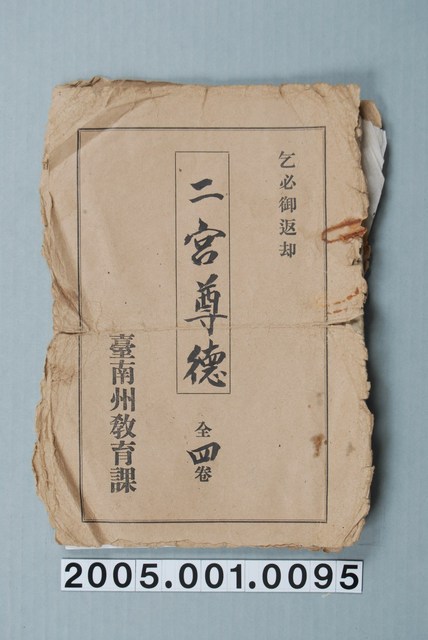 乞必御返却
二宮尊德
全四卷
臺南州教育課
2005.001.0095